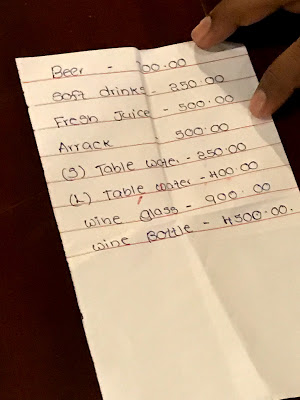 Beer - 00.00
Soft drinks - 250.00
Fresh Juice - 500.00
Arrack - 500.00
(S) Table water - 250.00
(L) Table water - 400.00
Wine Glass - 900.00
Wine Bottle - 4500.00.